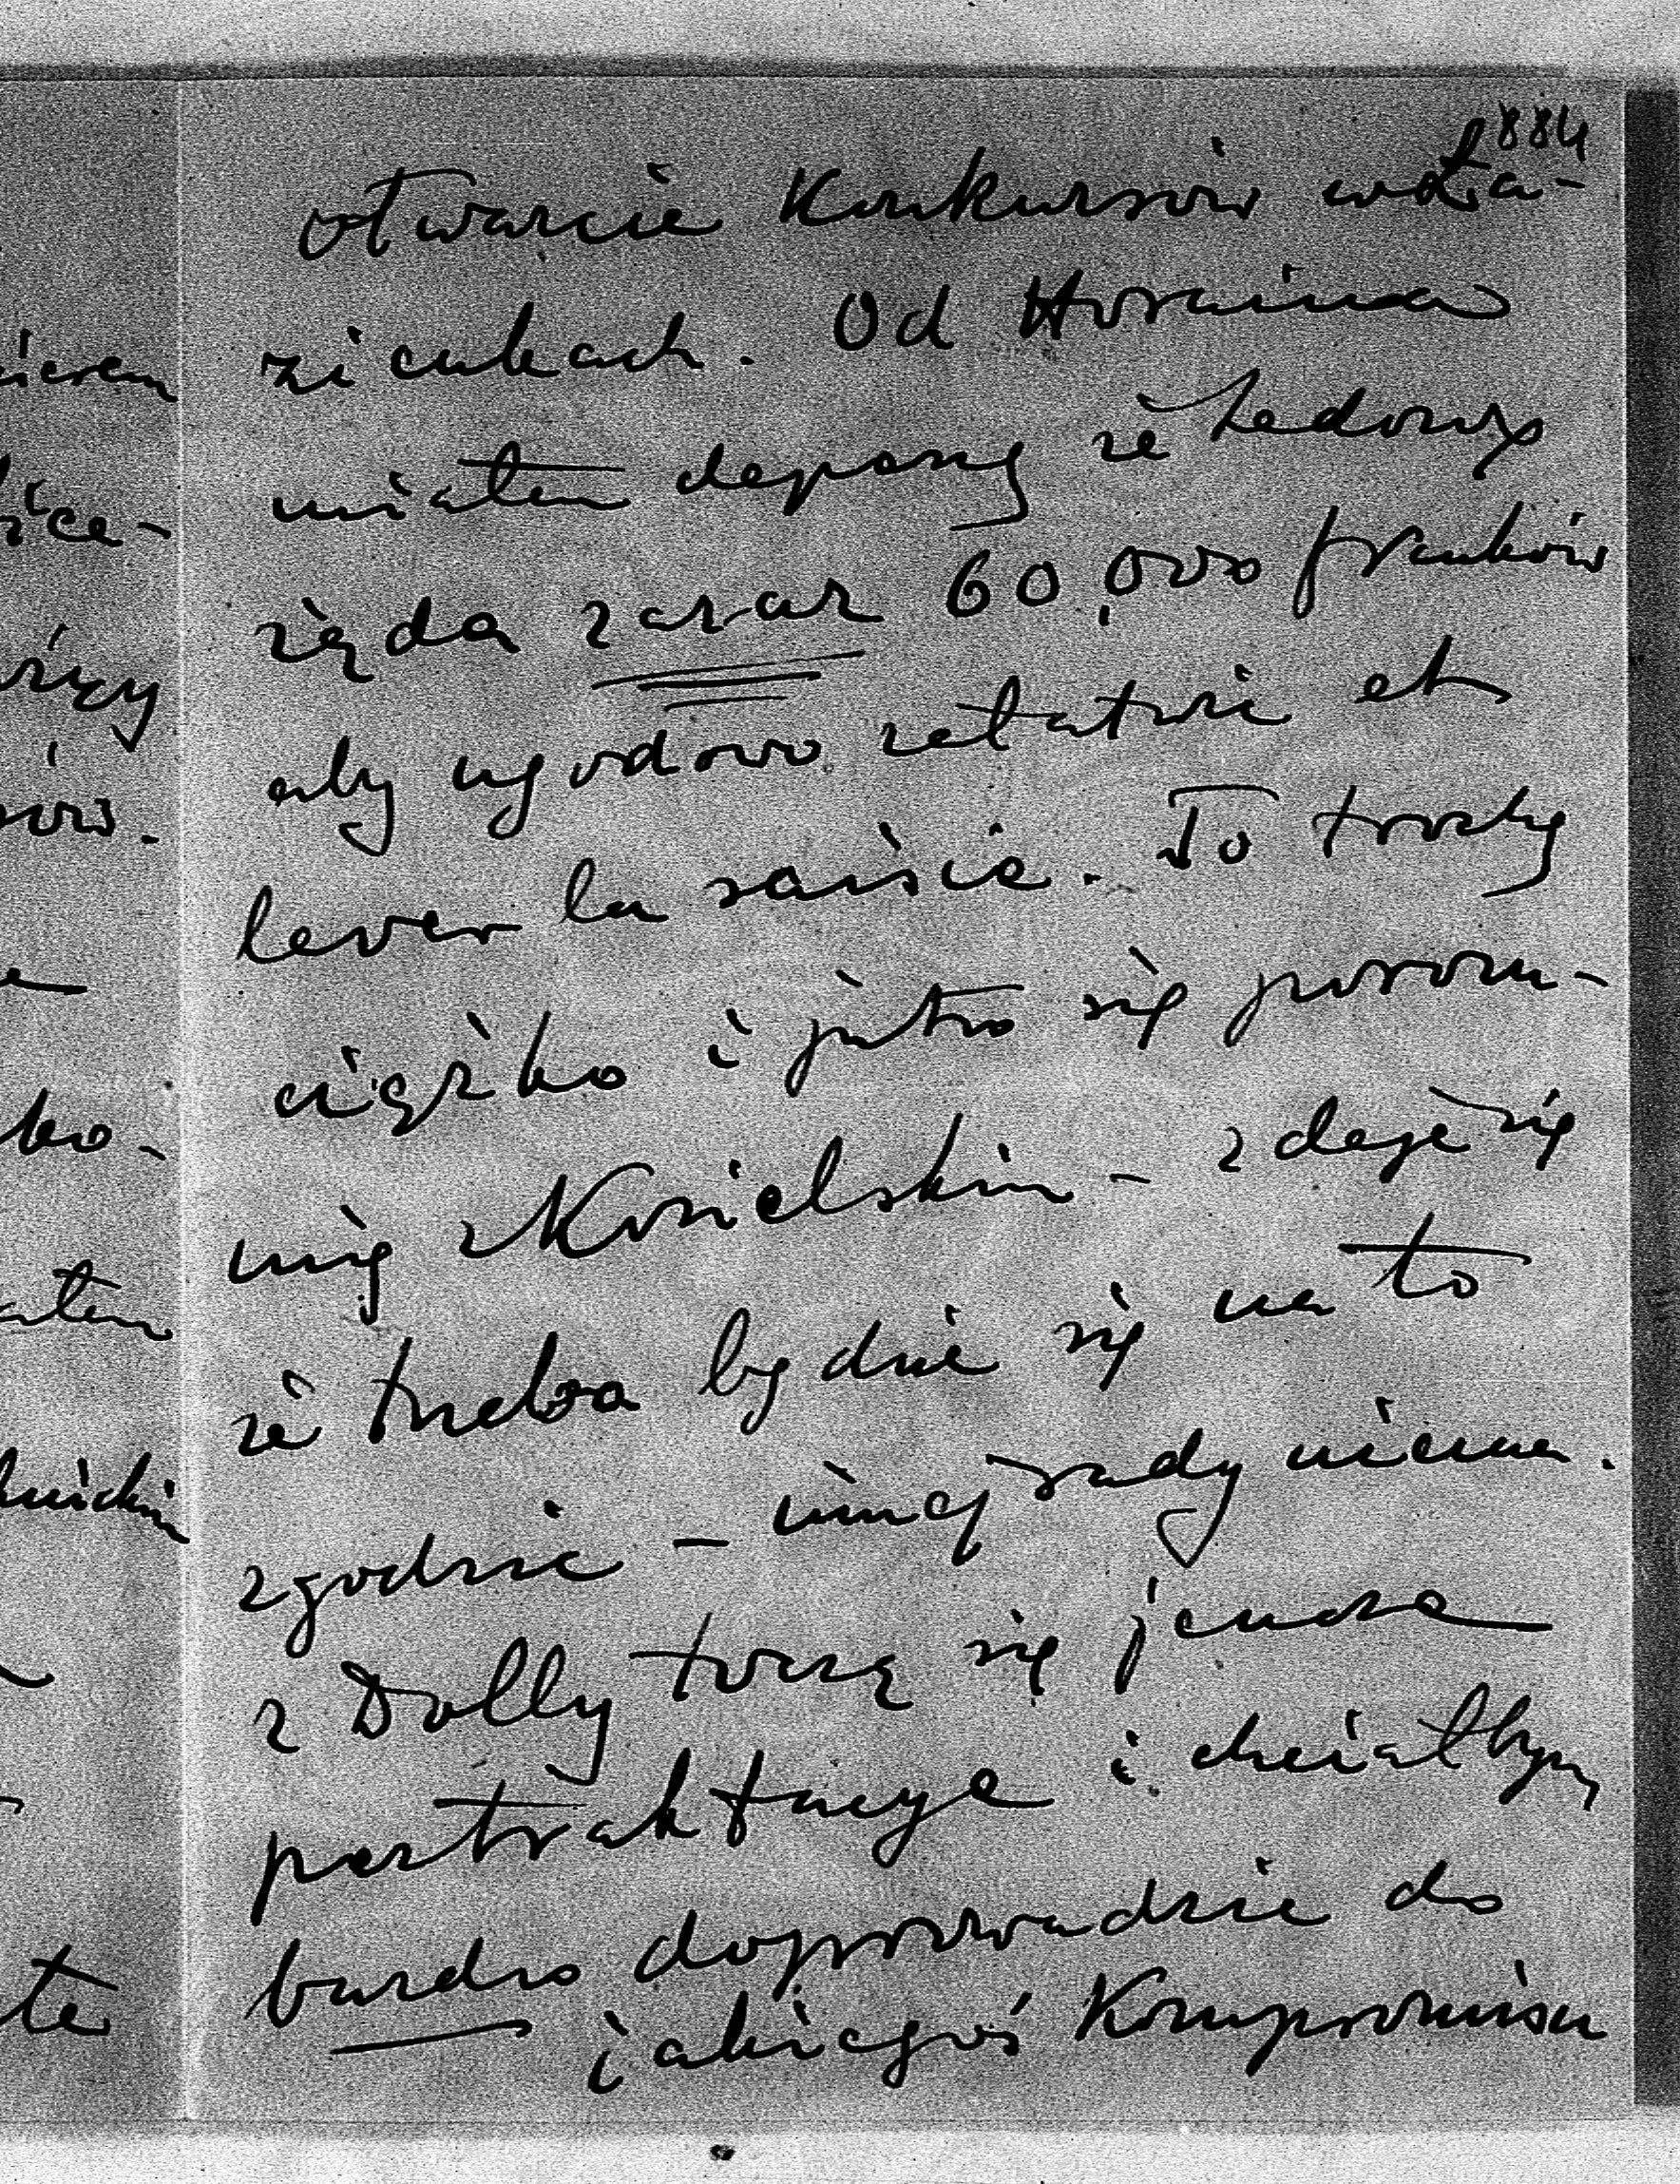 884
otwarcie Konkursów w Ła-
zienkach. Od Horaina
miałem depeszę że Ledoux
żąda zaraz 60,000 franków
aby ugodowo załatwić et
lever la saisie. To trochę
ciężko i jutro się porozu-
mię z Kosielskim – zdaje się
że trzeba będzie się na to
zgodzić – innej rady niema.
z Dolly toczą się jeszcze
pertraktacye i chciałbym
bardzo doprowadzić do
jakiegoś Kompromisu